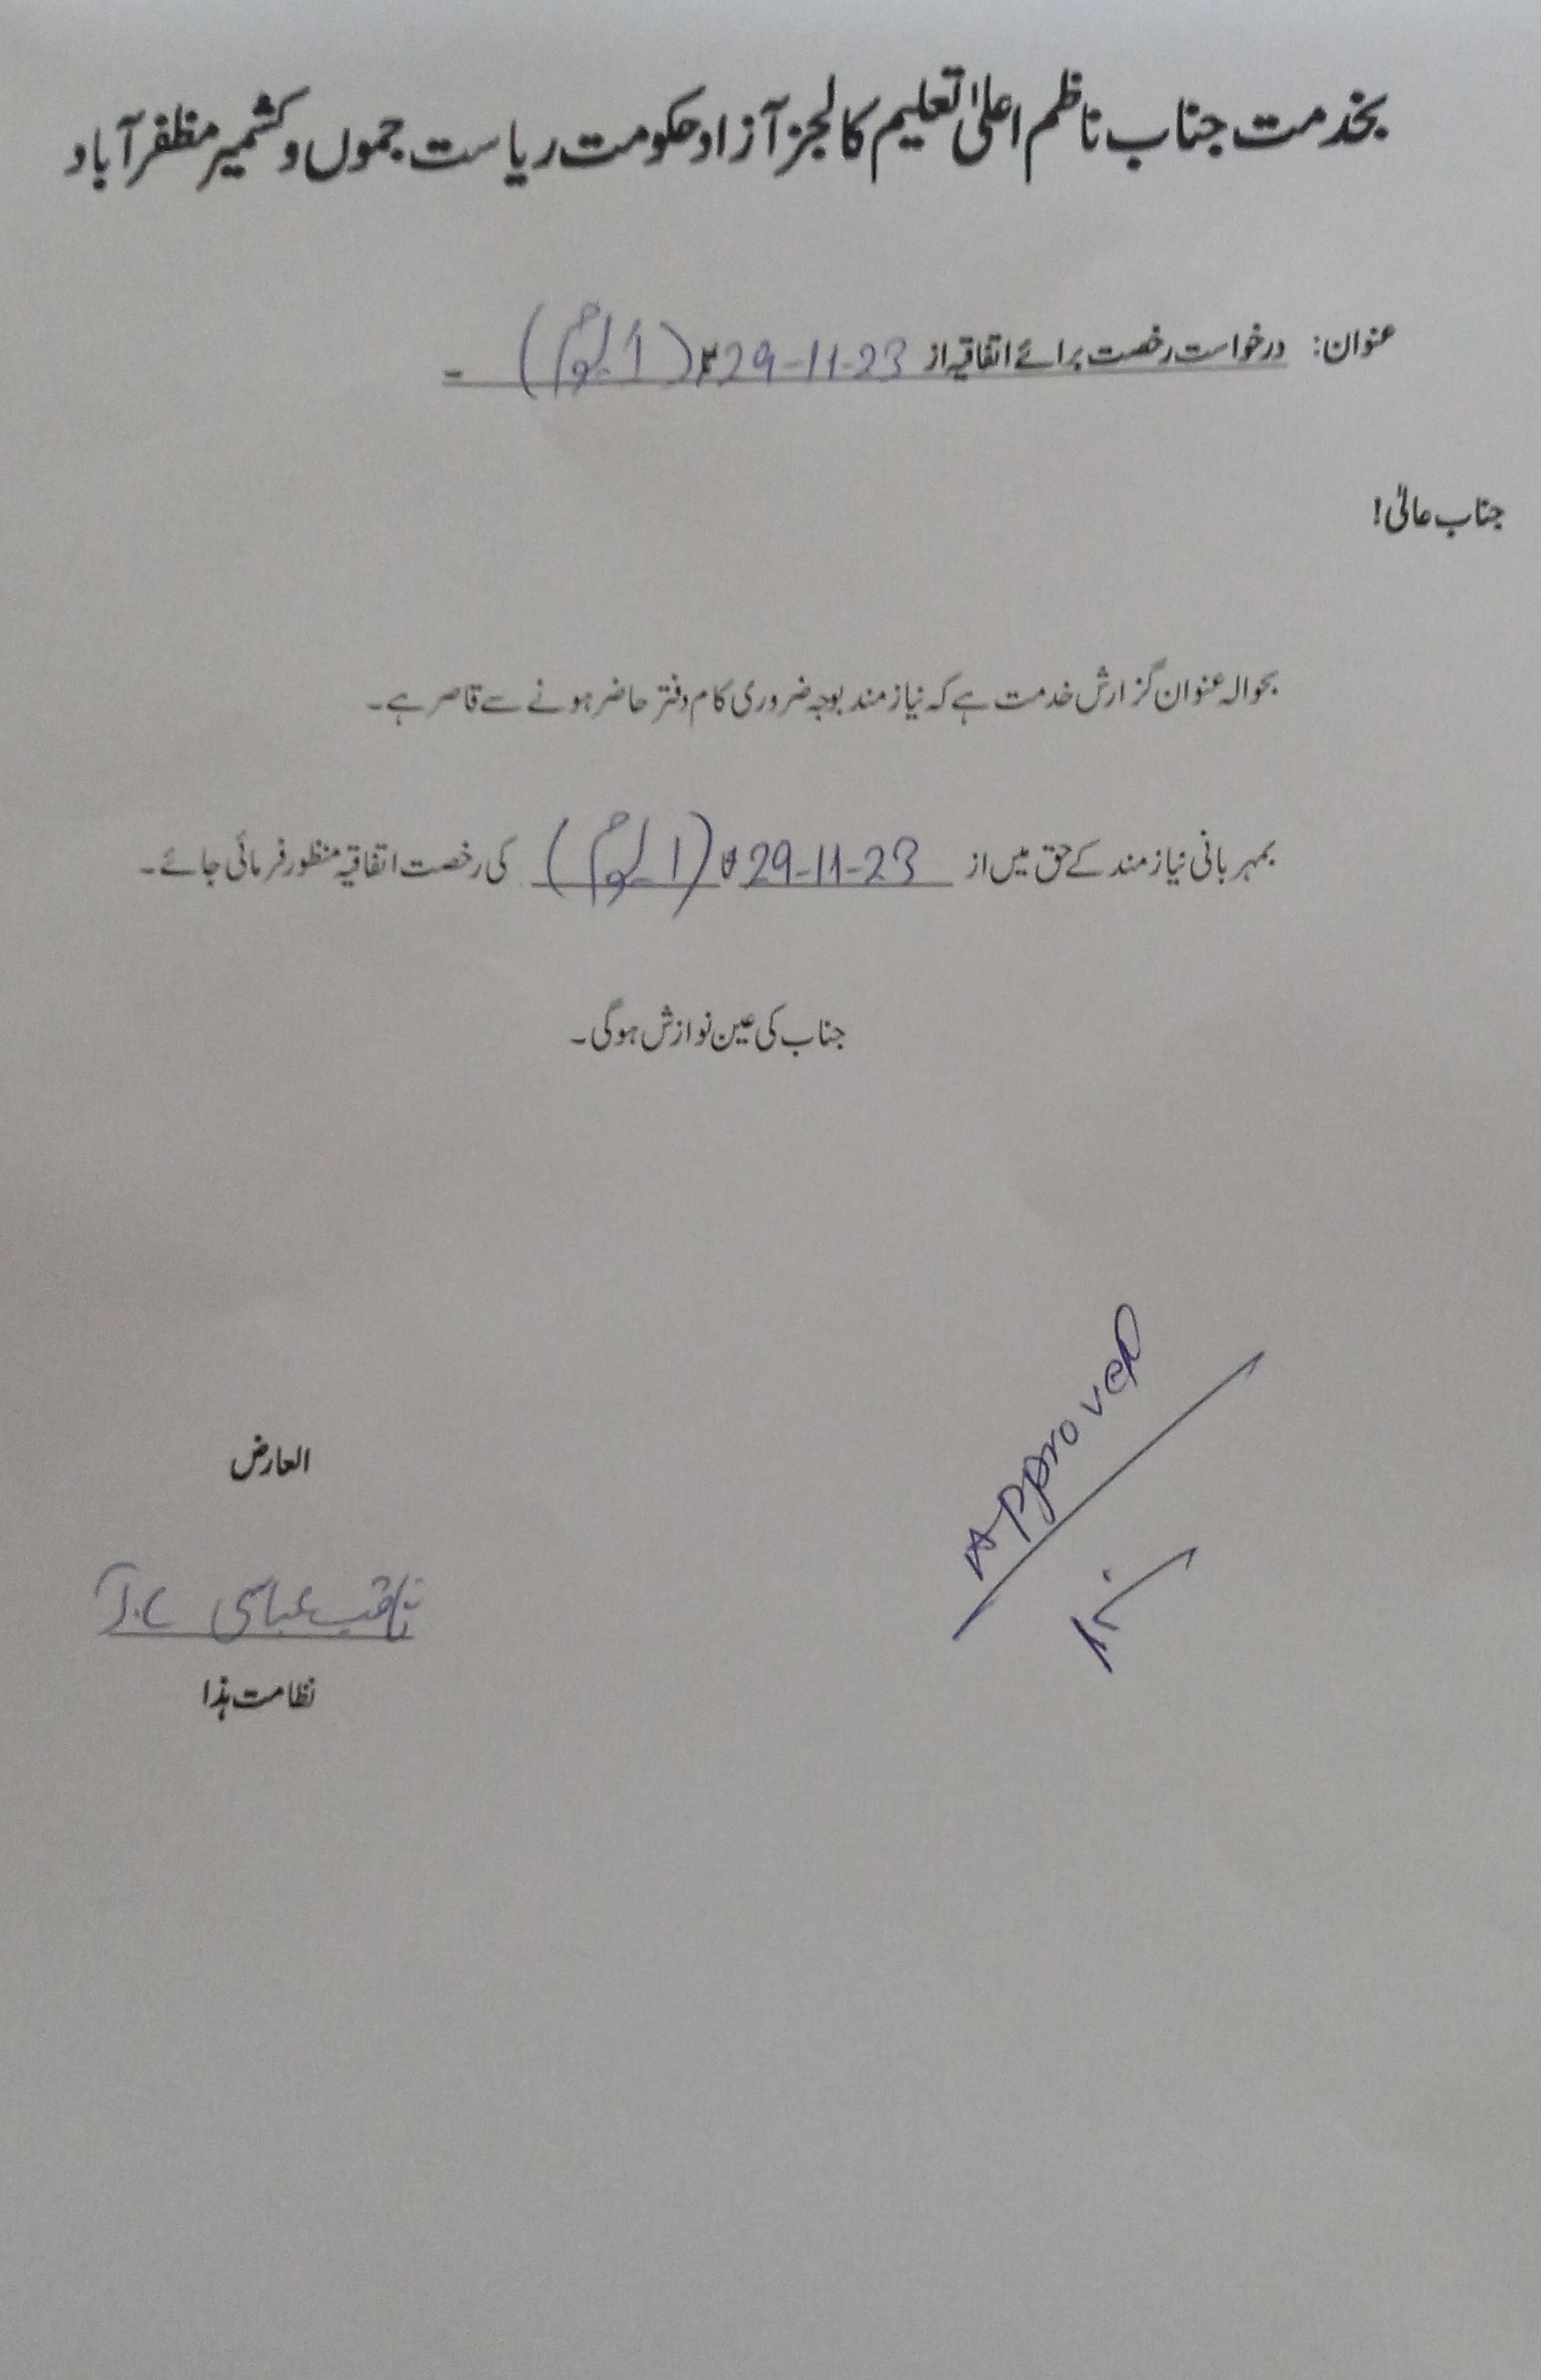 بخدمت جناب ناظم اعلیٰ تعلیم کالجز آزاد حکومت ریاست جموں و کشمیر مظفرآباد
عنوان: درخواست رخصت برائے اتفاقیہ از 29-11-23 (1 یوم) ۔
جناب عالیٰ!
بحوالہ عنوان گزارش خدمت ہے کہ نیاز مند بوجہ ضروری کام دفتر حاضر ہونے سے قاصر ہے۔
بمہربانی نیاز مند کے حق میں از 29-11-23 تا (1 یوم) کی رخصت اتفاقیہ منظور فرمائی جائے۔
جناب کی عین نوازش ہوگی۔
Approved
العارض
عباسی J.C
نظامت ہذا